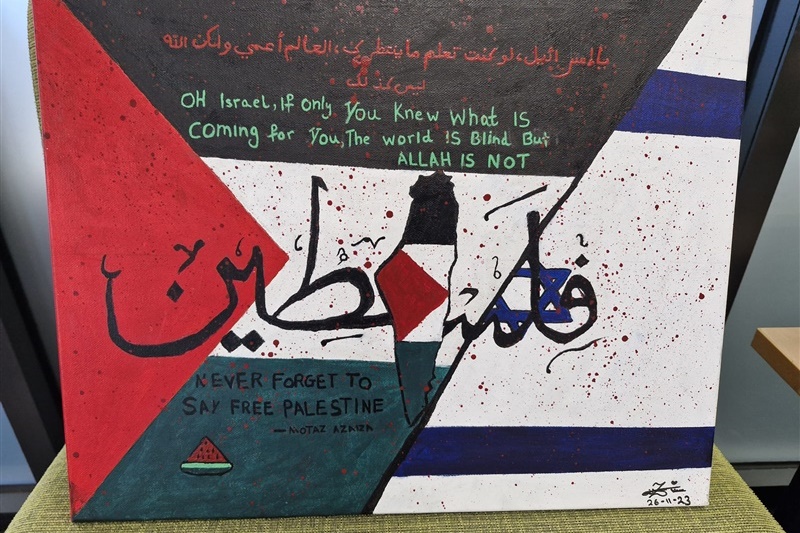 لو كنت تعلم ما ينتظركِ، العالم أعمي ولكن الله
ليس كذلك
OH Israel, If only You Knew What IS
Coming for You, The world IS Blind But
ALLAH IS NOT
فلسطين
NEVER FORGET TO
SAY FREE PALESTINE
— MOTAZ AZAIZA
26-11-23